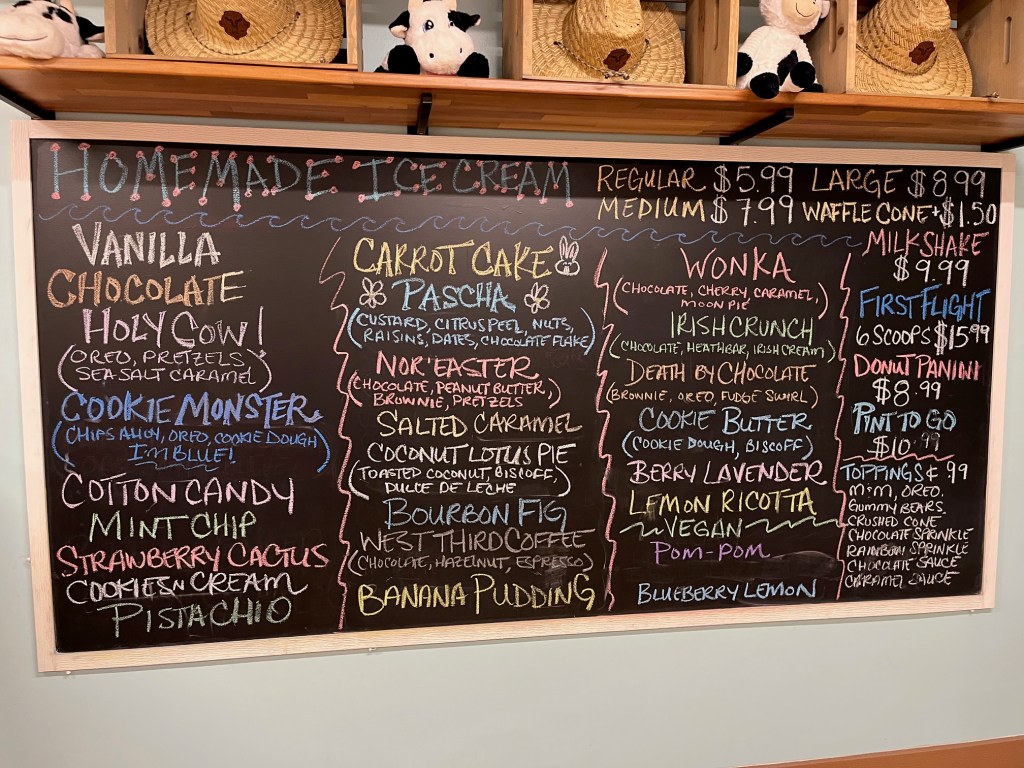 HOMEMADE ICE CREAM
REGULAR $5.99 LARGE $8.99
MEDIUM $7.99 WAFFLE CONE +$1.50
VANILLA
CHOCOLATE
HOLY COW!
(OREO, PRETZELS,
SEA SALT CARAMEL)
COOKIE MONSTER
(CHIPS AHOY, OREO, COOKIE DOUGH)
I'M BLUE!
COTTON CANDY
MINT CHIP
STRAWBERRY CACTUS
COOKIES N CREAM
PISTACHIO
CARROT CAKE
PASCHA
(CUSTARD, CITRUS PEEL, NUTS,
RAISINS, DATES, CHOCOLATE FLAKE)
NOR'EASTER
(CHOCOLATE, PEANUT BUTTER,
BROWNIE, PRETZELS)
SALTED CARAMEL
COCONUT LOTUS PIE
(TOASTED COCONUT, BISCOFF,
DULCE DE LECHE)
BOURBON FIG
WEST THIRD COFFEE
(CHOCOLATE, HAZELNUT, ESPRESSO)
BANANA PUDDING
WONKA
(CHOCOLATE, CHERRY CARAMEL,
MOON PIE)
IRISH CRUNCH
(CHOCOLATE, HEATH BAR, IRISH CREAM)
DEATH BY CHOCOLATE
(BROWNIE, OREO, FUDGE SWIRL)
COOKIE BUTTER
(COOKIE DOUGH, BISCOFF)
BERRY LAVENDER
LEMON RICOTTA
VEGAN
POM-POM
BLUEBERRY LEMON
MILKSHAKE
$9.99
FIRST FLIGHT
6 SCOOPS $15.99
DONUT PANINI
$8.99
PINT TO GO
$10.99
TOPPINGS ¢.99
M+M, OREO,
GUMMY BEARS,
CRUSHED CONE
CHOCOLATE SPRINKLE
RAINBOW SPRINKLE
CHOCOLATE SAUCE
CARAMEL SAUCE